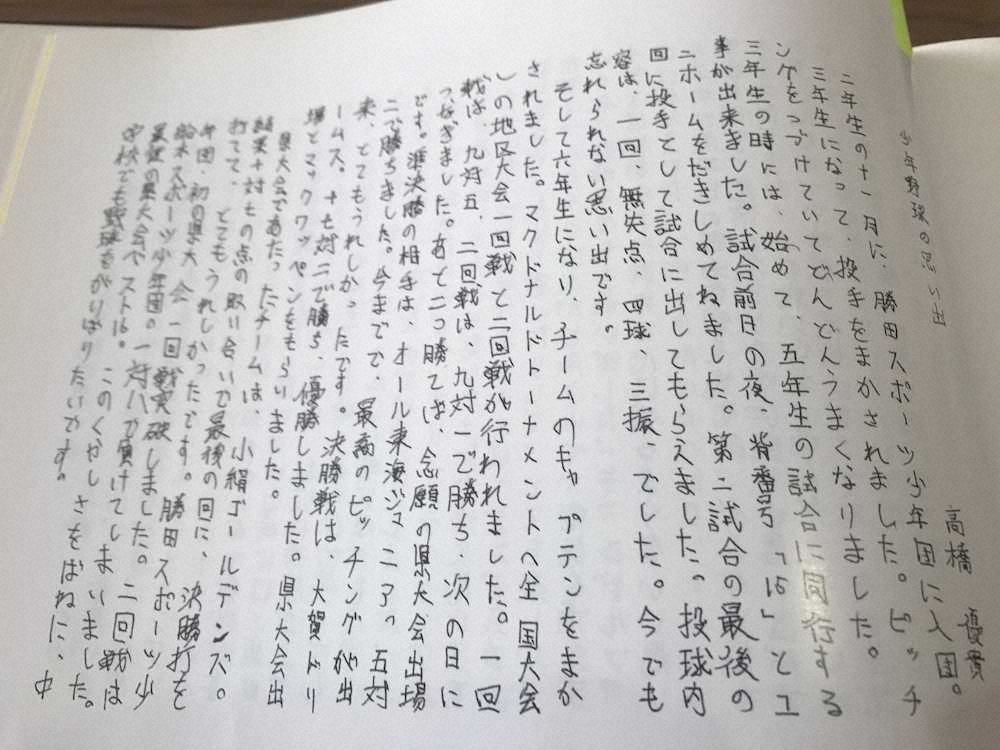 少年野球の思い出
高橋 優貴
二年生の十一月に、勝田スポーツ少年団に入団。
三年生になって、投手をまかされました。ピッチ
ングをつづけていてどんどんうまくなりました。
三年生の時には、始めて、五年生の試合に同行する
事が出来ました。試合前日の夜、背番号「16」とユ
ニホームをだきしめてねました。第二試合の最後の
回に投手として試合に出してもらえました。投球内
容は、一回、無失点、四球、三振、でした。今でも
忘れられない思い出です。
そして六年生になり、チームのキャプテンをまか
されました。マクドナルドトーナメントへ全国大会
しの地区大会一回戦と二回戦が行われました。一回
戦は、九対五、二回戦は、九対一で勝ち、次の日に
つなぎました。あと二つ勝てば、念願の県大会出場
です。準決勝の相手は、オール東海ジュニア。五対
二で勝ちました。今までで、最高のピッチングが出
来、とてもうれしかったです。決勝戦は、大賀ドリ
ームス。十七対二で勝ち、優勝しました。県大会出
場とマックワッペンをもらいました。
県大会であたったチームは、小絹ゴールデンズ。
結果十対七の点の取り合いで最後の回に、決勝打を
打てて、とてもうれしかったです。勝田スポーツ少
年団、初の県大会一回戦突破しました。二回戦は
船木スポーツ少年団の一対八で負けてしまいました。
最後の県大会ベスト16。このくやしさをばねに、中
学校でも野球をがんばりたいです。